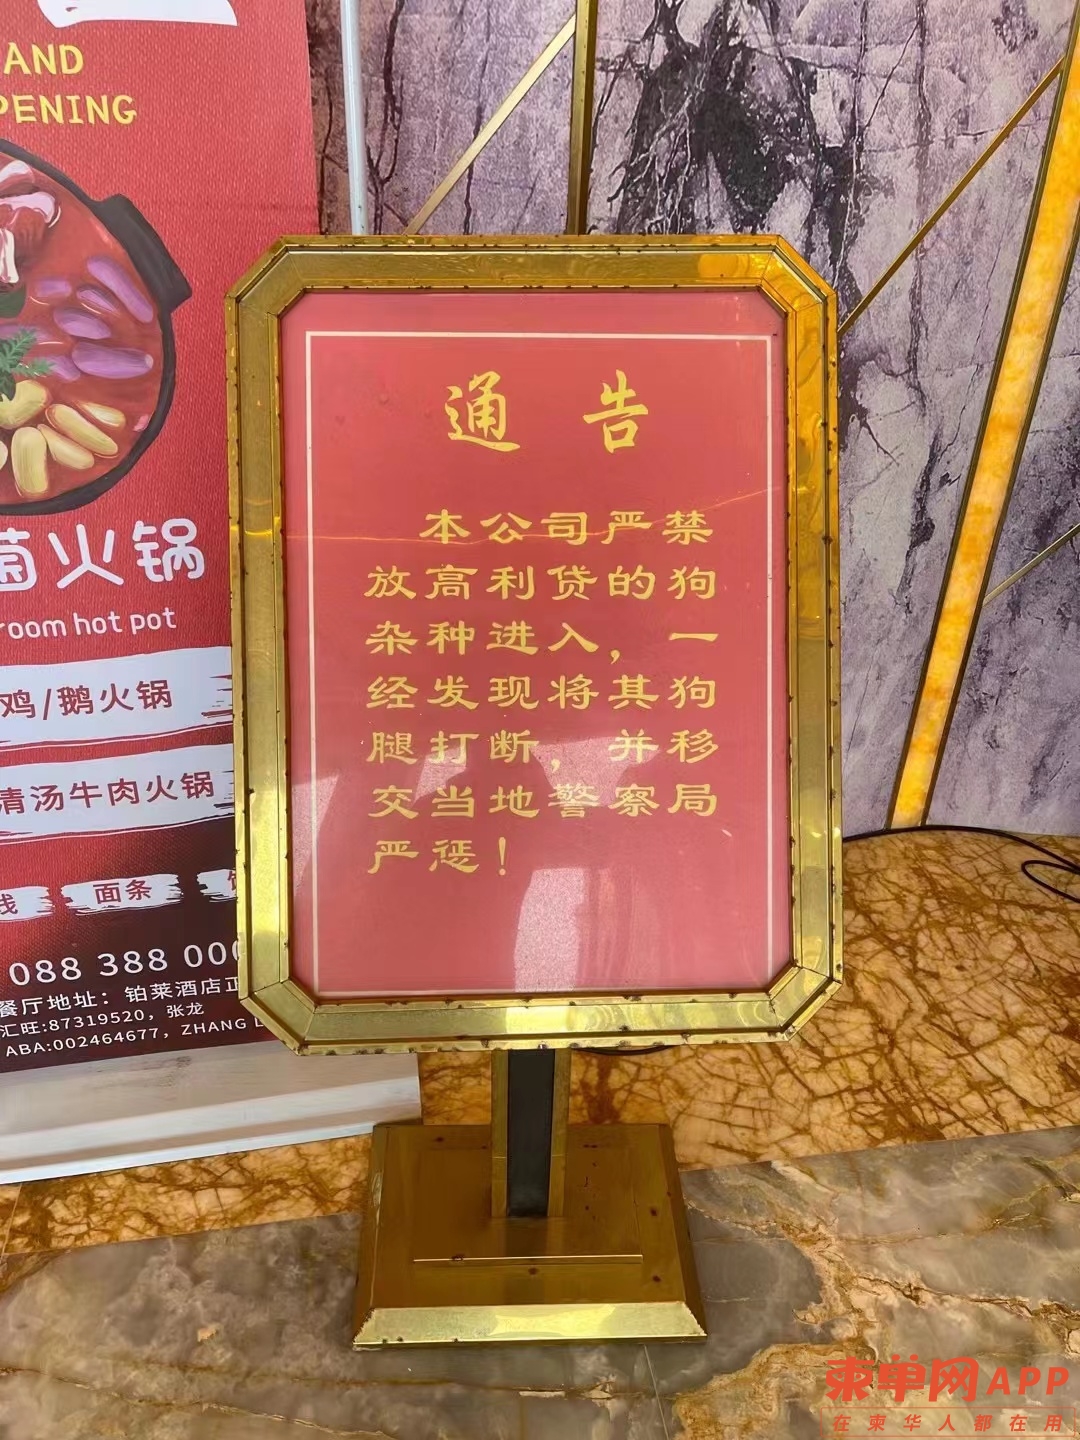 AND
PENING
菌火锅
room hot pot
鸡/鹅火锅
清汤牛肉火锅
线 面条
088 388 000
餐厅地址：铂莱酒店正
汇旺:87319520，张龙
ABA:002464677，ZHANG L
通告
本公司严禁
放高利贷的狗
杂种进入，一
经发现将其狗
腿打断，并移
交当地警察局
严惩！
柬单网APP
在柬华人都在用